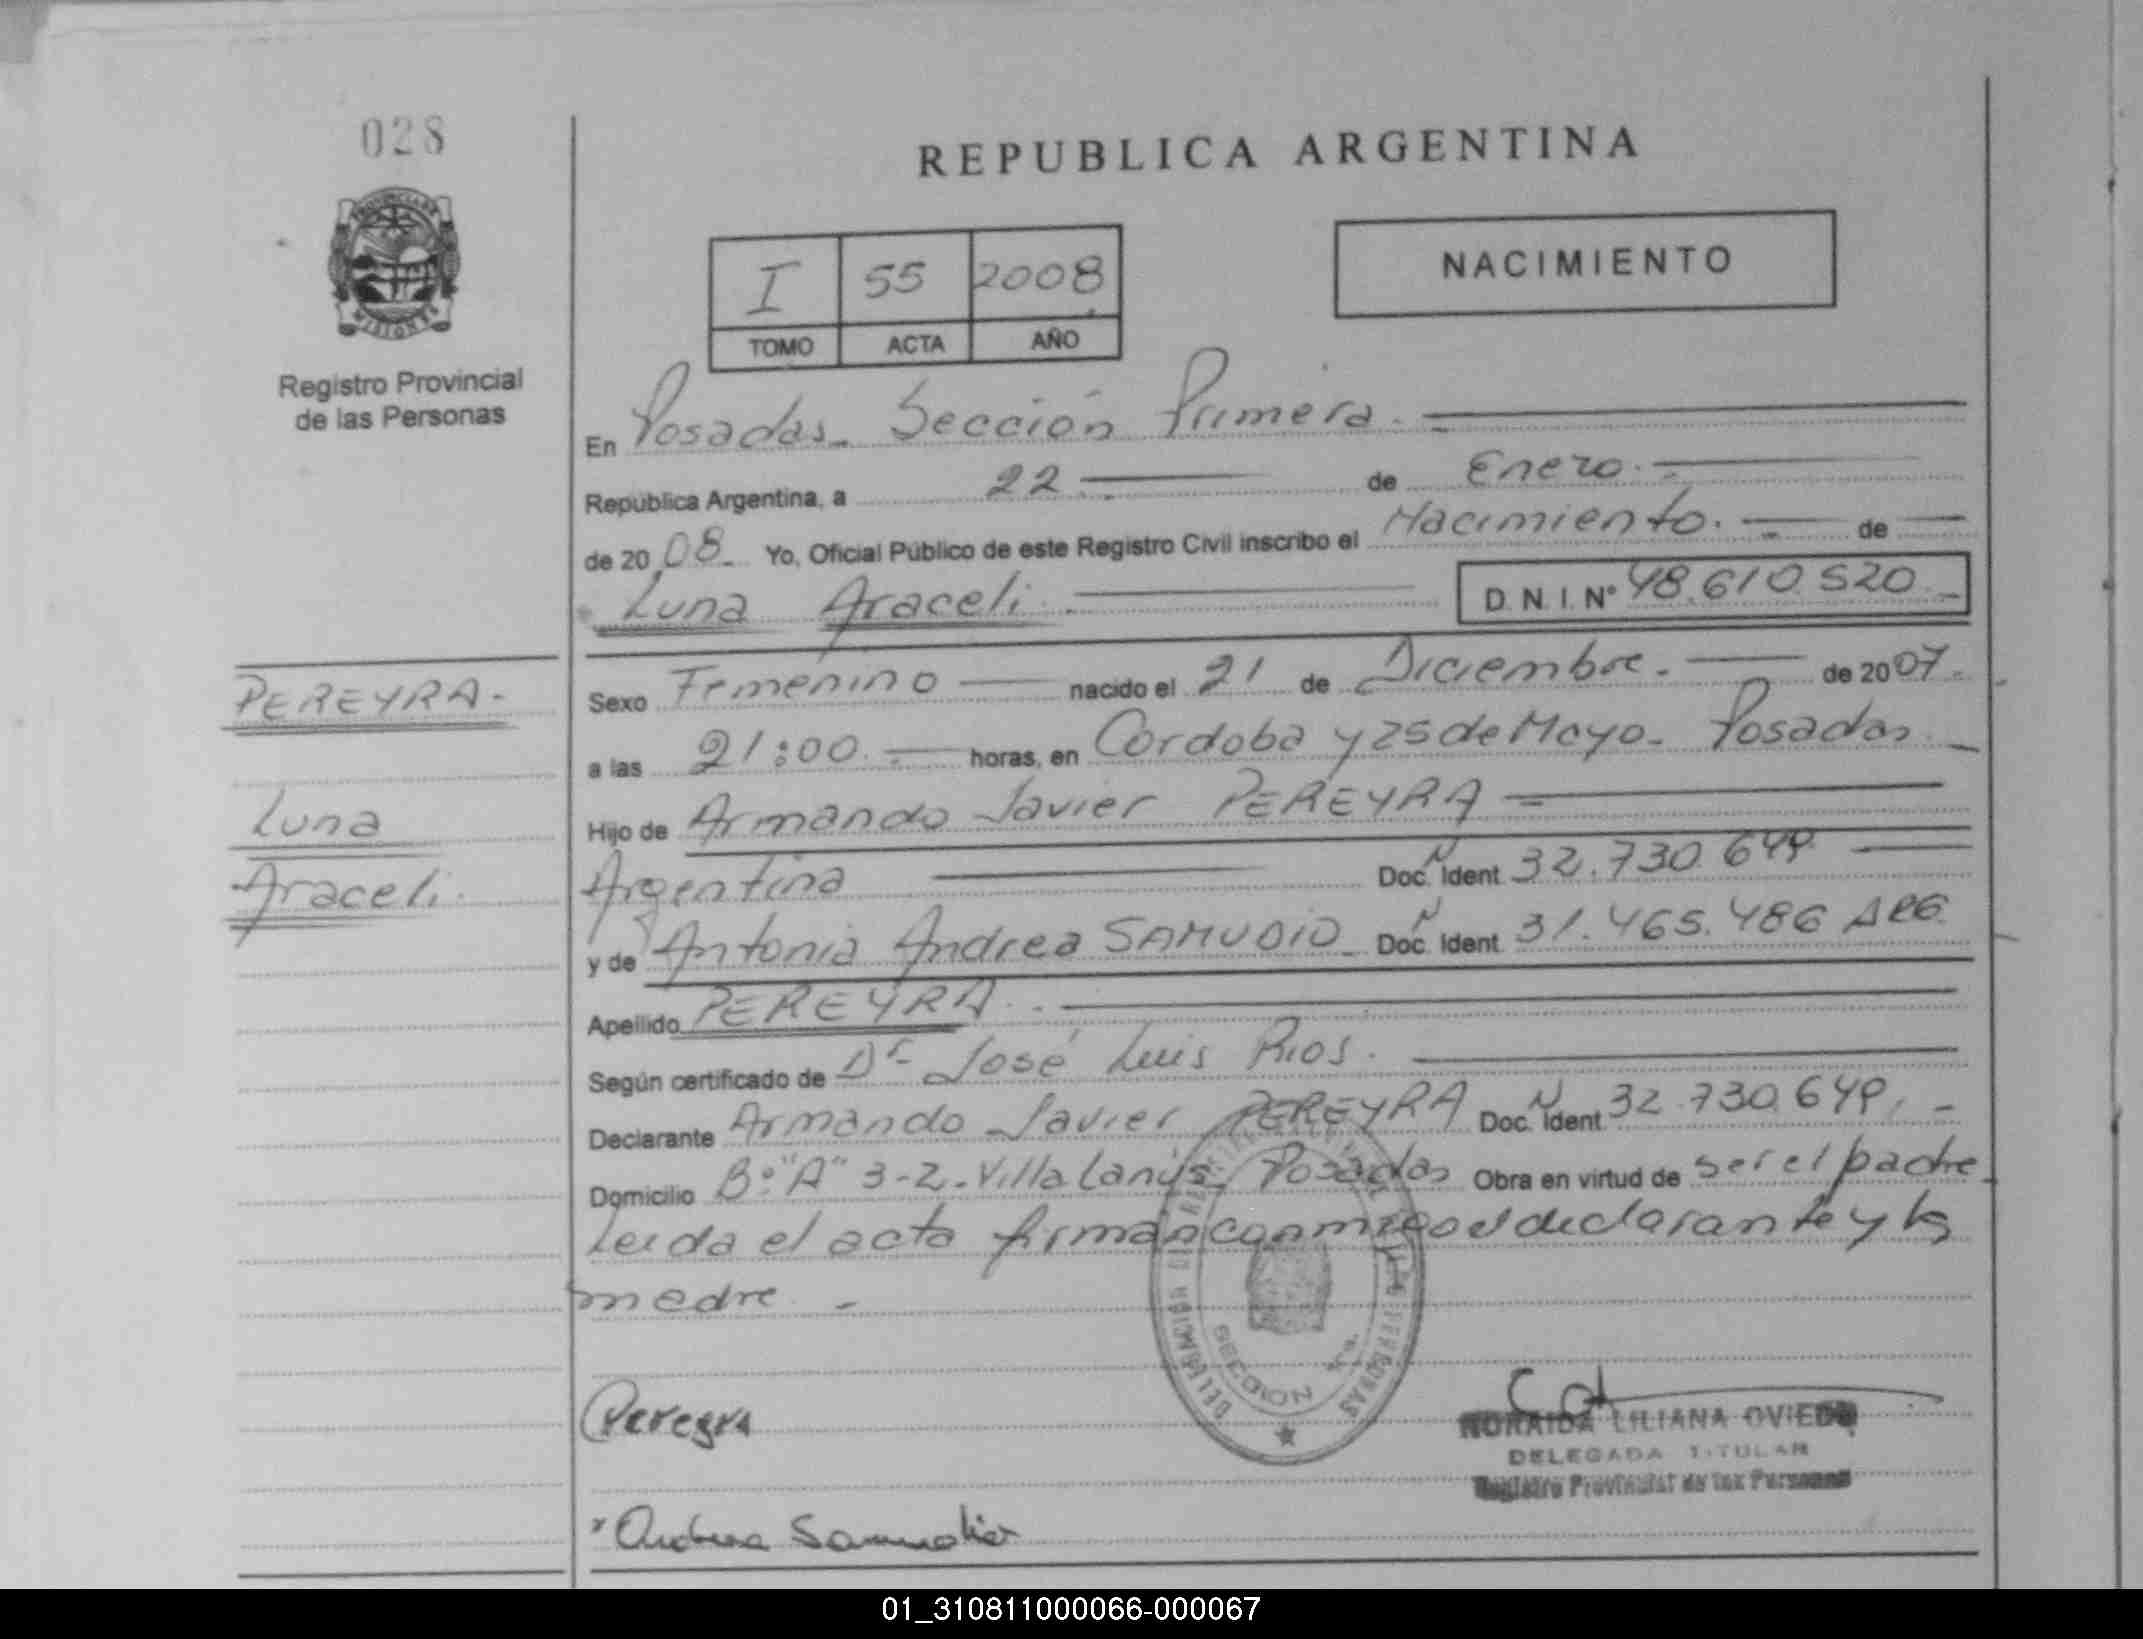 028
REPUBLICA ARGENTINA
PROVINCIA DE
MISIONES
I 55 2008
TOMO ACTA AÑO
NACIMIENTO
Registro Provincial
de las Personas
En Posadas. Sección Primera. -
República Argentina, a 22 de Enero. -
de 2008. Yo, Oficial Público de este Registro Civil inscribo el Nacimiento. - de
Luna Araceli. D.N.I. Nº 48.610.520
Sexo Femenino nacido el 21 de Diciembre. de 2007.
PEREYRA.-
a las 21:00. horas, en Córdoba y 25 de Mayo. Posadas
Luna
Hijo de Armando Javier PEREYRA
Araceli.
Argentina Doc. Ident. 32.730.649.
y de Antonia Andrea SAMUDIO Doc. Ident. 31.465.486 ARG
Apellido PEREYRA.
Según certificado de Dr José Luis Rios.
Declarante Armando Javier PEREYRA Doc. Ident. 32.730.649. -
Domicilio Bº "A" 3-2. Villa Lanús, Posadas Obra en virtud de ser el padre
Leida el acta firman conmigo el declarante y la
madre. -
SECCION 1ra.
Pereyra
NORAIDA LILIANA OVIEDO
DELEGADA TITULAR
Registro Provincial de las Personas
Andrea Samudio
01_310811000066-000067